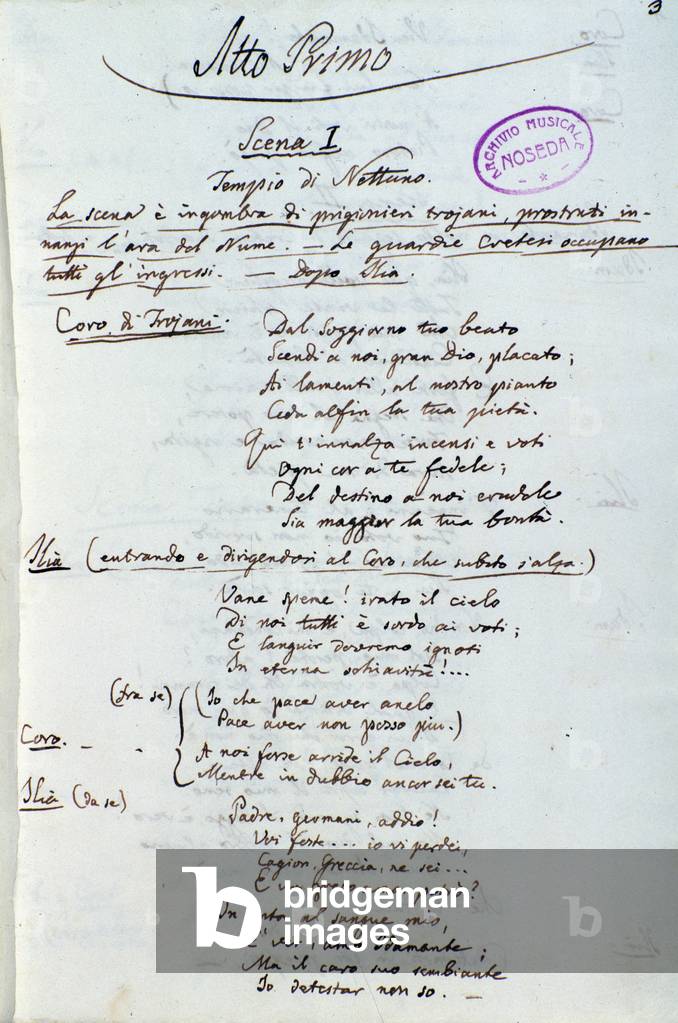 3
Atto Primo
Scena I
ARCHIVIO MUSICALE
NOSEDA
Tempio di Nettuno.
La scena è ingombra di prigionieri trojani, prostrati in-
nanzi l'ara del Nume. — Le guardie Cretesi occupano
tutti gl'ingressi. — Dopo Ilia.
Coro di Trojani. Dal Soggiorno tuo beato
Scendi a noi, gran Dio, placato;
Ai lamenti, al nostro pianto
Ceda alfin la tua pietà.
Qui t'innalza incensi e voti
Ogni cor a te fedele;
Del destino a noi crudele
Sia maggior la tua bontà.
Ilia (entrando e dirigendosi al Coro, che subito s'alza.)
Vane spene! irato il cielo
Di noi tutti è sordo ai voti;
E languir dovremo ignoti
In eterna schiavitù!...
(tra se) (Io che pace aver anelo
Pace aver non posso piu.)
Coro. — A noi forse arride il Cielo,
Mentre in dubbio ancor sei tu.
Ilia (da se)
Padre, germani, addio!
Voi foste... io vi perdei,
Cagion, Greccia, ne sei...
E un
al sangue mio,
Idamante;
Ma il caro suo sembiante
Io detestar non so. —
b bridgeman
images